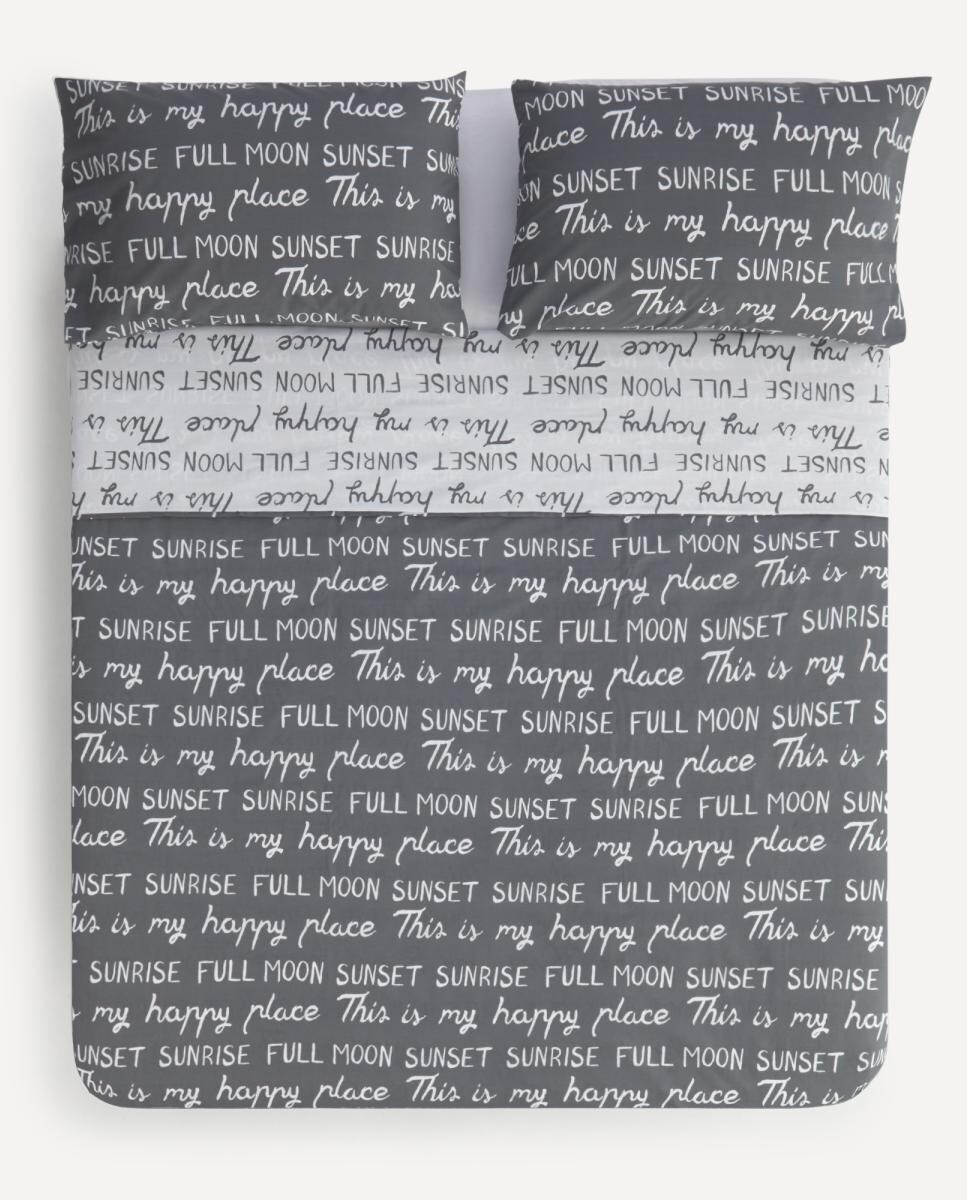 SUNSET SUNRISE FULL MOON SUNSET SUNS
This is my happy place This
SUNRISE FULL MOON SUNSET SUN
my happy place This is my
RISE FULL MOON SUNSET SUNRISE
happy place This is my ha
ET SUNRISE FULL MOON SUNSET SU
MOON SUNSET SUNRISE FULL MOO
place This is my happy plac
ON SUNSET SUNRISE FULL MOON S
ce This is my happy place T
FULL MOON SUNSET SUNRISE FULL M
my happy place This is my happy pl
is my happy place This is my happy place This is my h
SUNSET SUNRISE FULL MOON SUNSET SUNRISE FULL MOON SUNSET SUNRISE
e This is my happy place This is my happy place This is
N SUNSET SUNRISE FULL MOON SUNSET SUNRISE FULL MOON SUNSET
is my happy place This is my happy place This is my
UNSET SUNRISE FULL MOON SUNSET SUNRISE FULL MOON SUNSET SUN
This is my happy place This is my happy place This is my
T SUNRISE FULL MOON SUNSET SUNRISE FULL MOON SUNSET SUNRISE
is my happy place This is my happy place This is my ha
SUNSET SUNRISE FULL MOON SUNSET SUNRISE FULL MOON SUNSET S
This is my happy place This is my happy place This is
MOON SUNSET SUNRISE FULL MOON SUNSET SUNRISE FULL MOON SUNS
lace This is my happy place This is my happy place This
NSET SUNRISE FULL MOON SUNSET SUNRISE FULL MOON SUNSET SUN
his is my happy place This is my happy place This is my
SUNRISE FULL MOON SUNSET SUNRISE FULL MOON SUNSET SUNRISE
my happy place This is my happy place This is my hap
UNSET SUNRISE FULL MOON SUNSET SUNRISE FULL MOON SUNSET SUN
This is my happy place This is my happy place This is